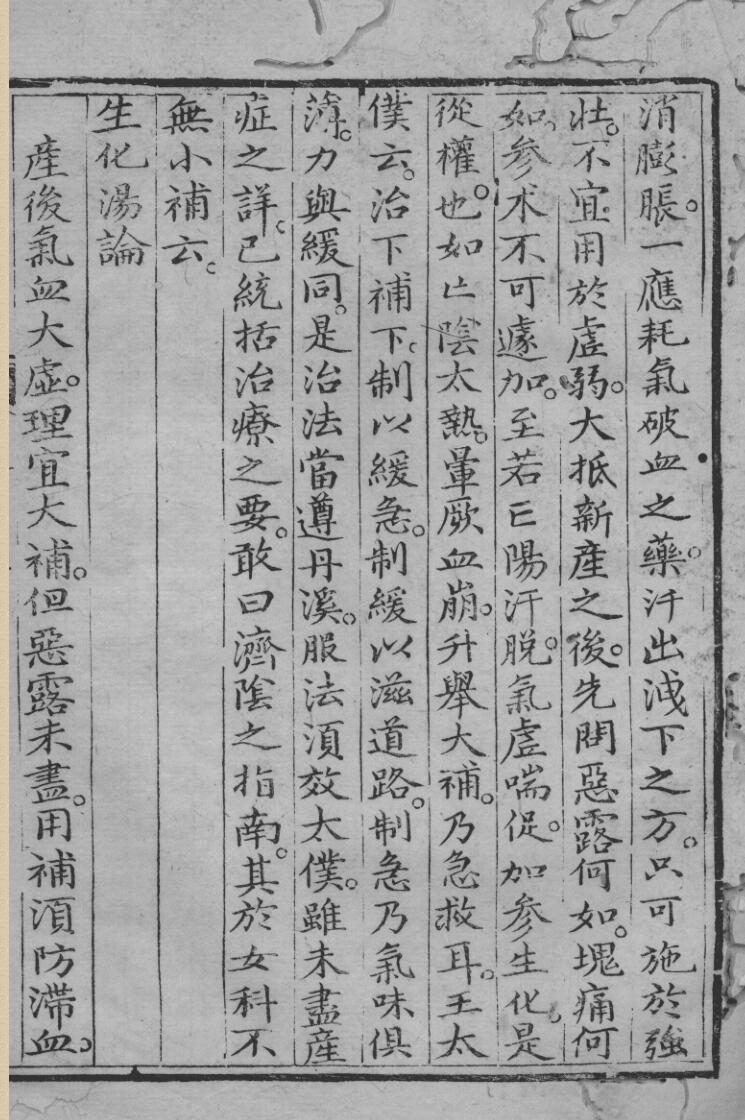 消膨脹。一應耗氣破血之藥。汗出洩下之方。只可施於強
壯。不宜用於虛弱。大抵新産之後。先問惡露何如。塊痛何
如。參朮不可遽加。至若亡陽汗脱。氣虛喘促。加參生化。是
從權也。如亡陰太熱。暈厥血崩。升舉大補。乃急救耳。王太
僕云。治下補下。制以緩急。制緩以滋道路。制急乃氣味俱
薄。力與緩同。是治法當遵丹溪。服法須效太僕。雖未盡産
症之詳。已統括治療之要。敢曰濟陰之指南。其於女科不
無小補云。
生化湯論
産後氣血大虛。理宜大補。但惡露未盡。用補須防滯血。